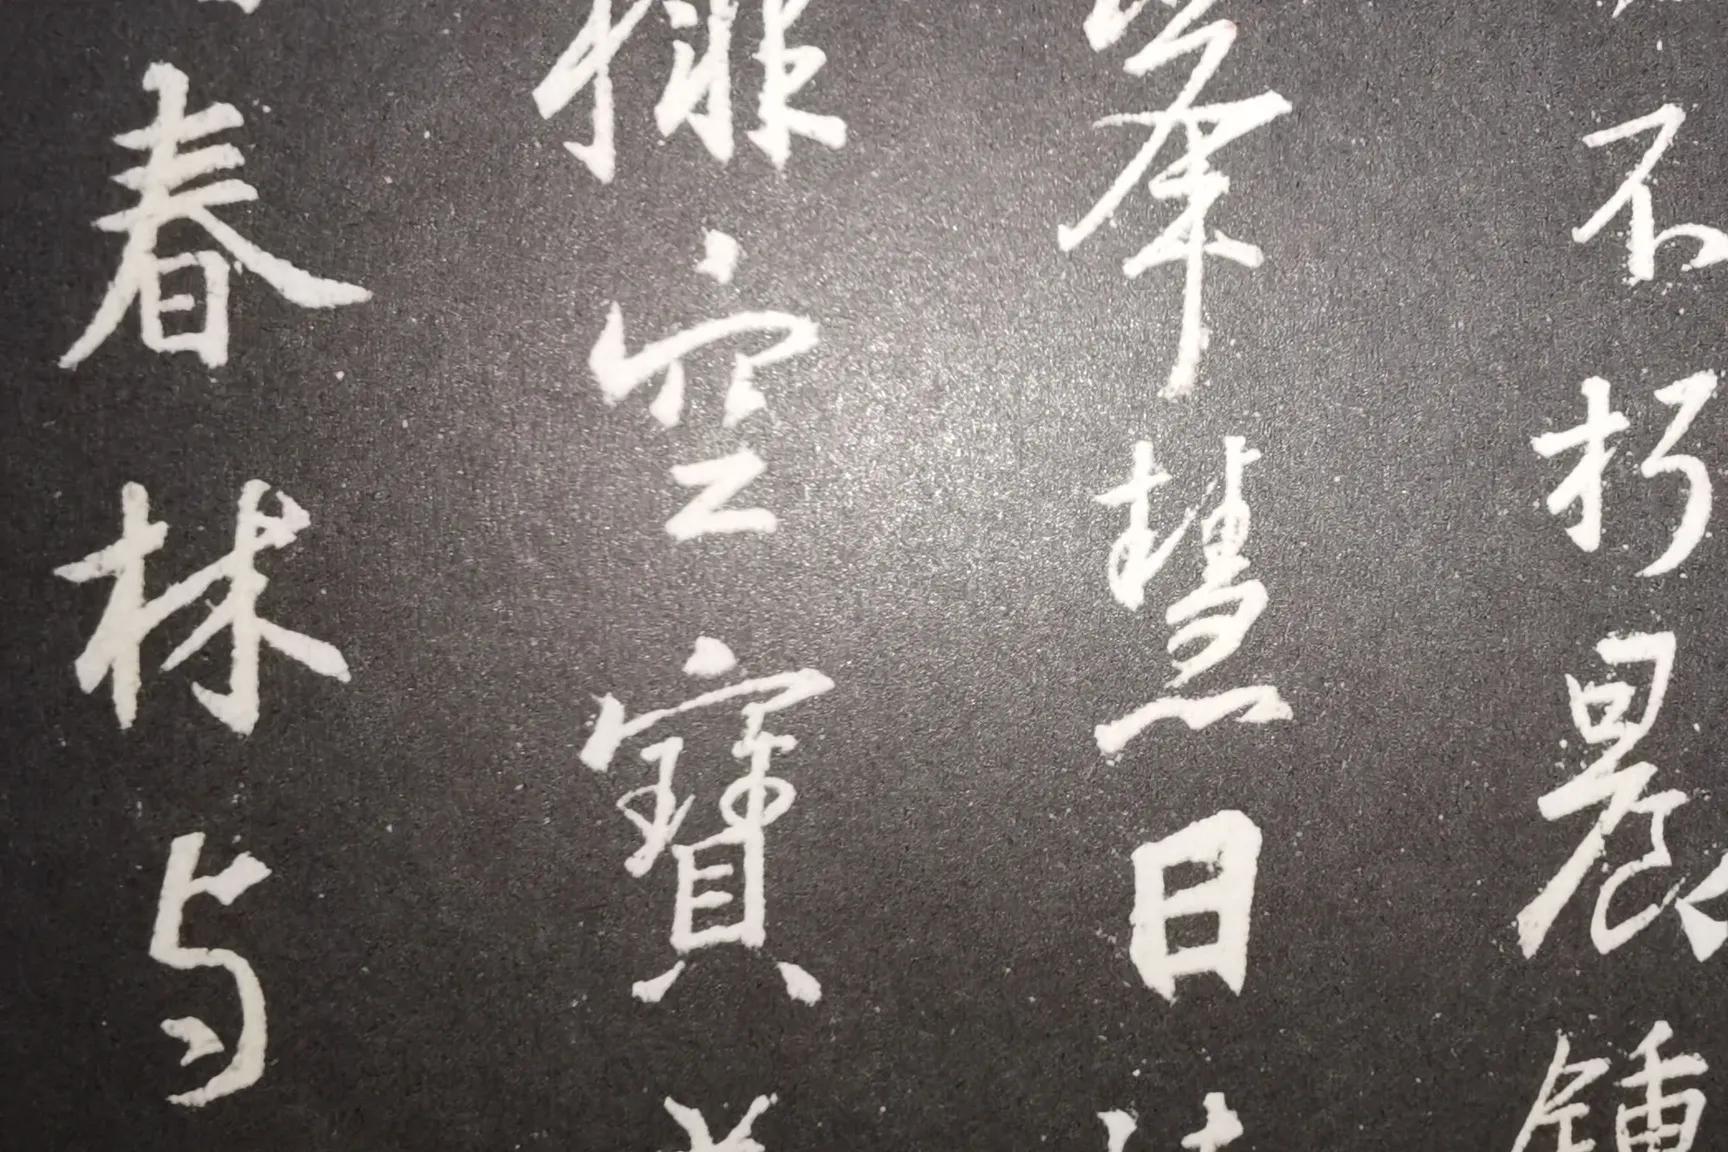 不朽晨鍾
峯慧日
排空寶
春林与